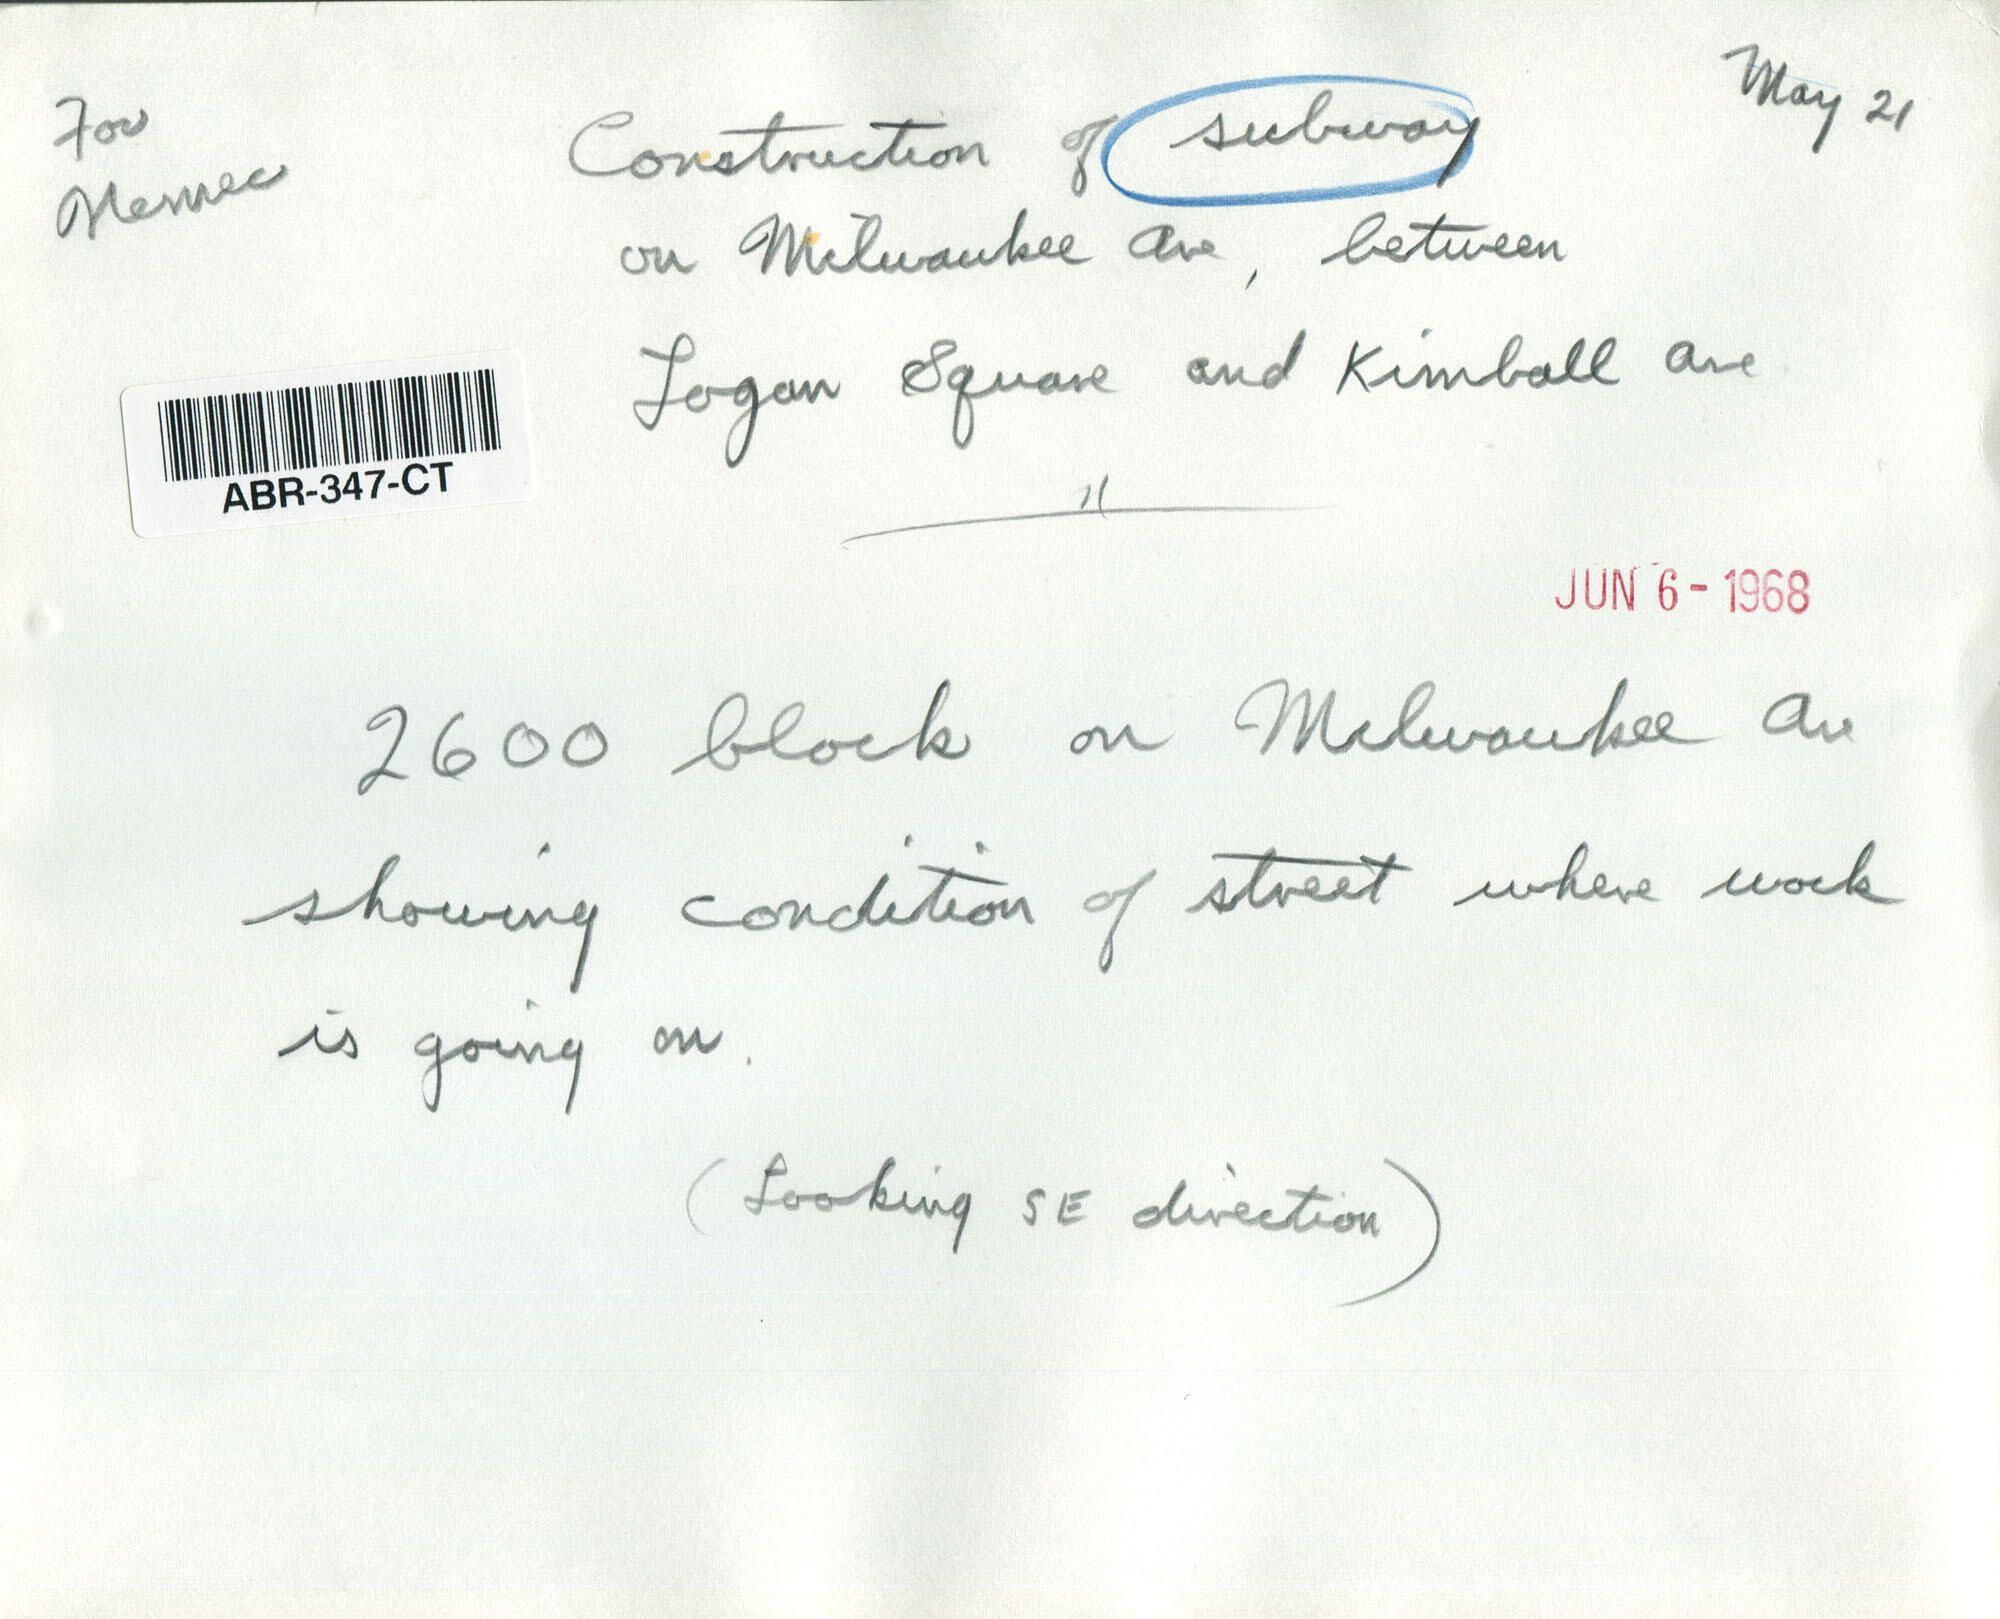 For
Nemec
May 21
Construction of subway
on Milwaukee Ave, between
Logan Square and Kimball Ave
ABR-347-CT
JUN 6 - 1968
2600 block on Milwaukee Ave
showing condition of street where work
is going on.
(Looking SE direction)